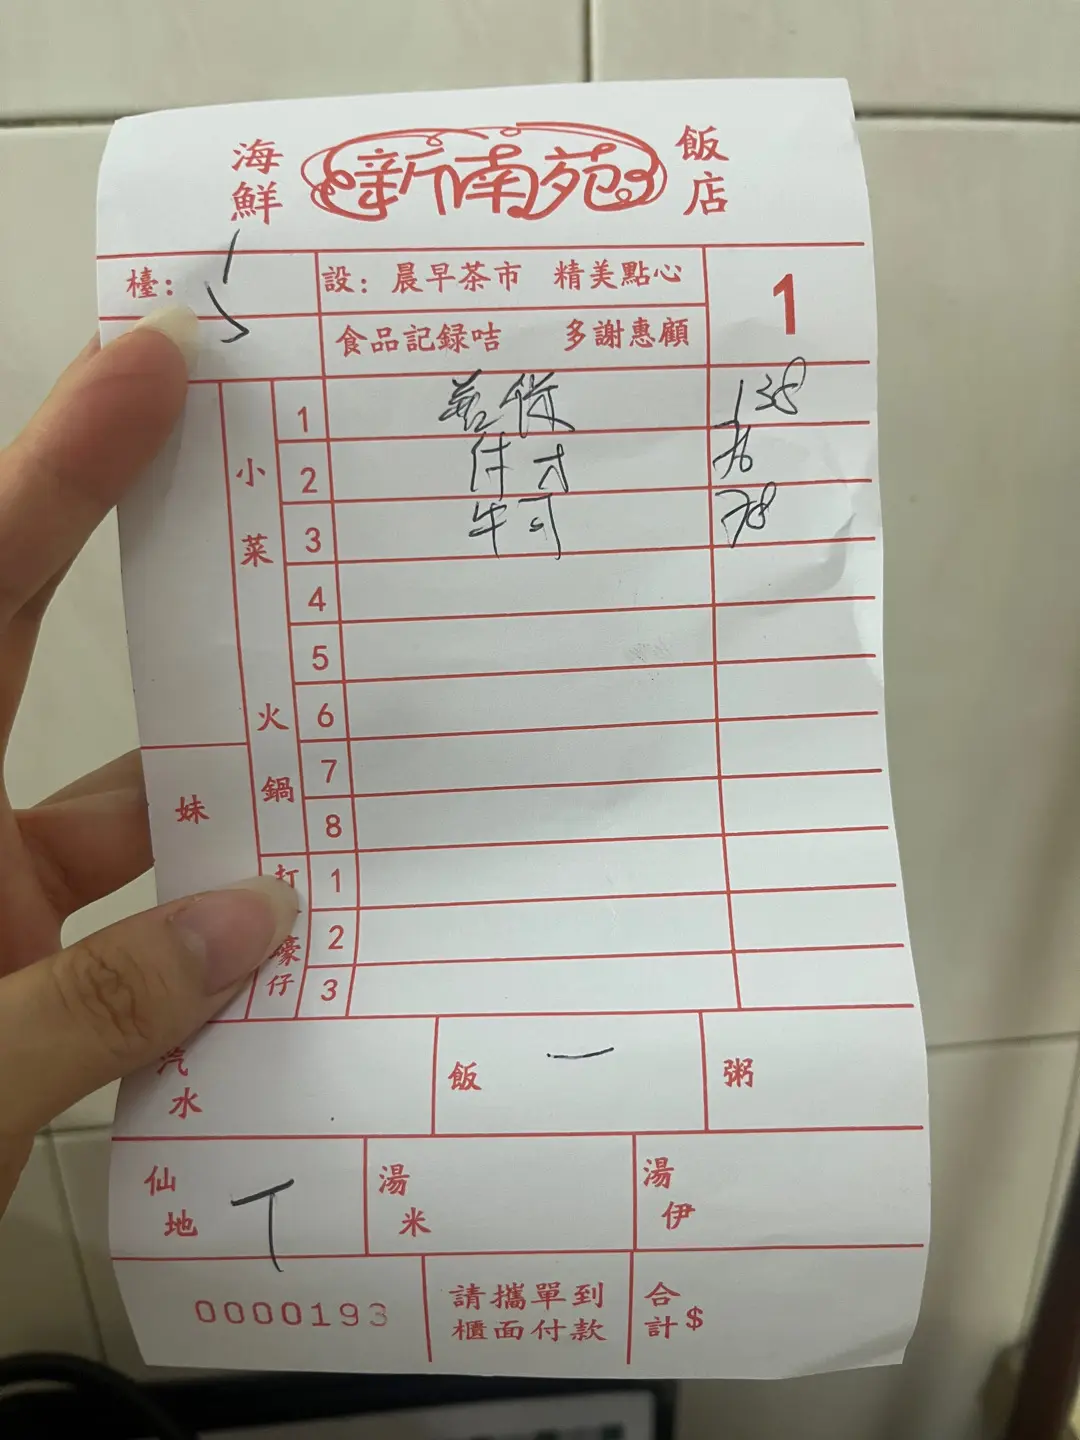 海鮮 新南苑 飯店
檯：
設：晨早茶市 精美點心
食品記録咭 多謝惠顧
1
小菜 火鍋
1 138
2 付
3 牛 78
4
5
6
7
8
妹
打
蠔仔
1
2
3
汽水
飯 一
粥
仙地 T
湯米
湯伊
0000193
請攜單到
櫃面付款
合計$